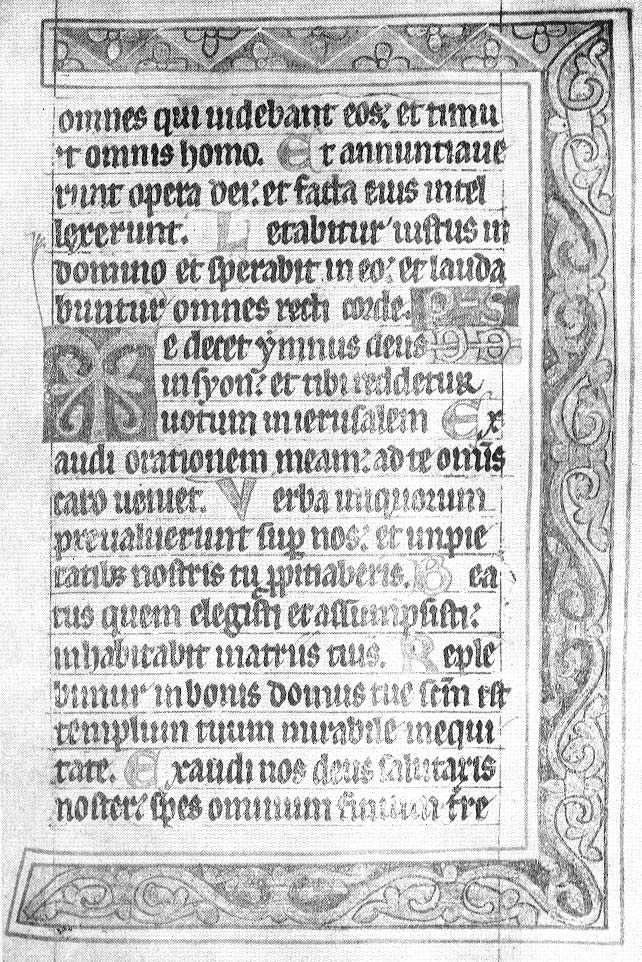 omnes qui uidebant eos: et timu
it omnis homo. Et annuntiaue
runt opera dei: et facta eius intel
lexerunt. Letabitur iustus in
domino et sperabit in eo: et lauda
buntur omnes recti corde. PS
Te decet ymnus deus DD
in syon: et tibi reddetur
uotum in ierusalem Ex
audi orationem meam: ad te omīs
caro ueniet. Verba iniquorum
preualuerunt sup nos: et impie
tatibȝ nostris tu ppitiaberis. Bea
tus quem elegisti et assumpsisti:
inhabitabit in atriis tuis. Reple
bimur in bonis domus tue sc̄m est
templum tuum mirabile in equi
tate. Exaudi nos deus salutaris
noster: spes omnium finium tr̄e